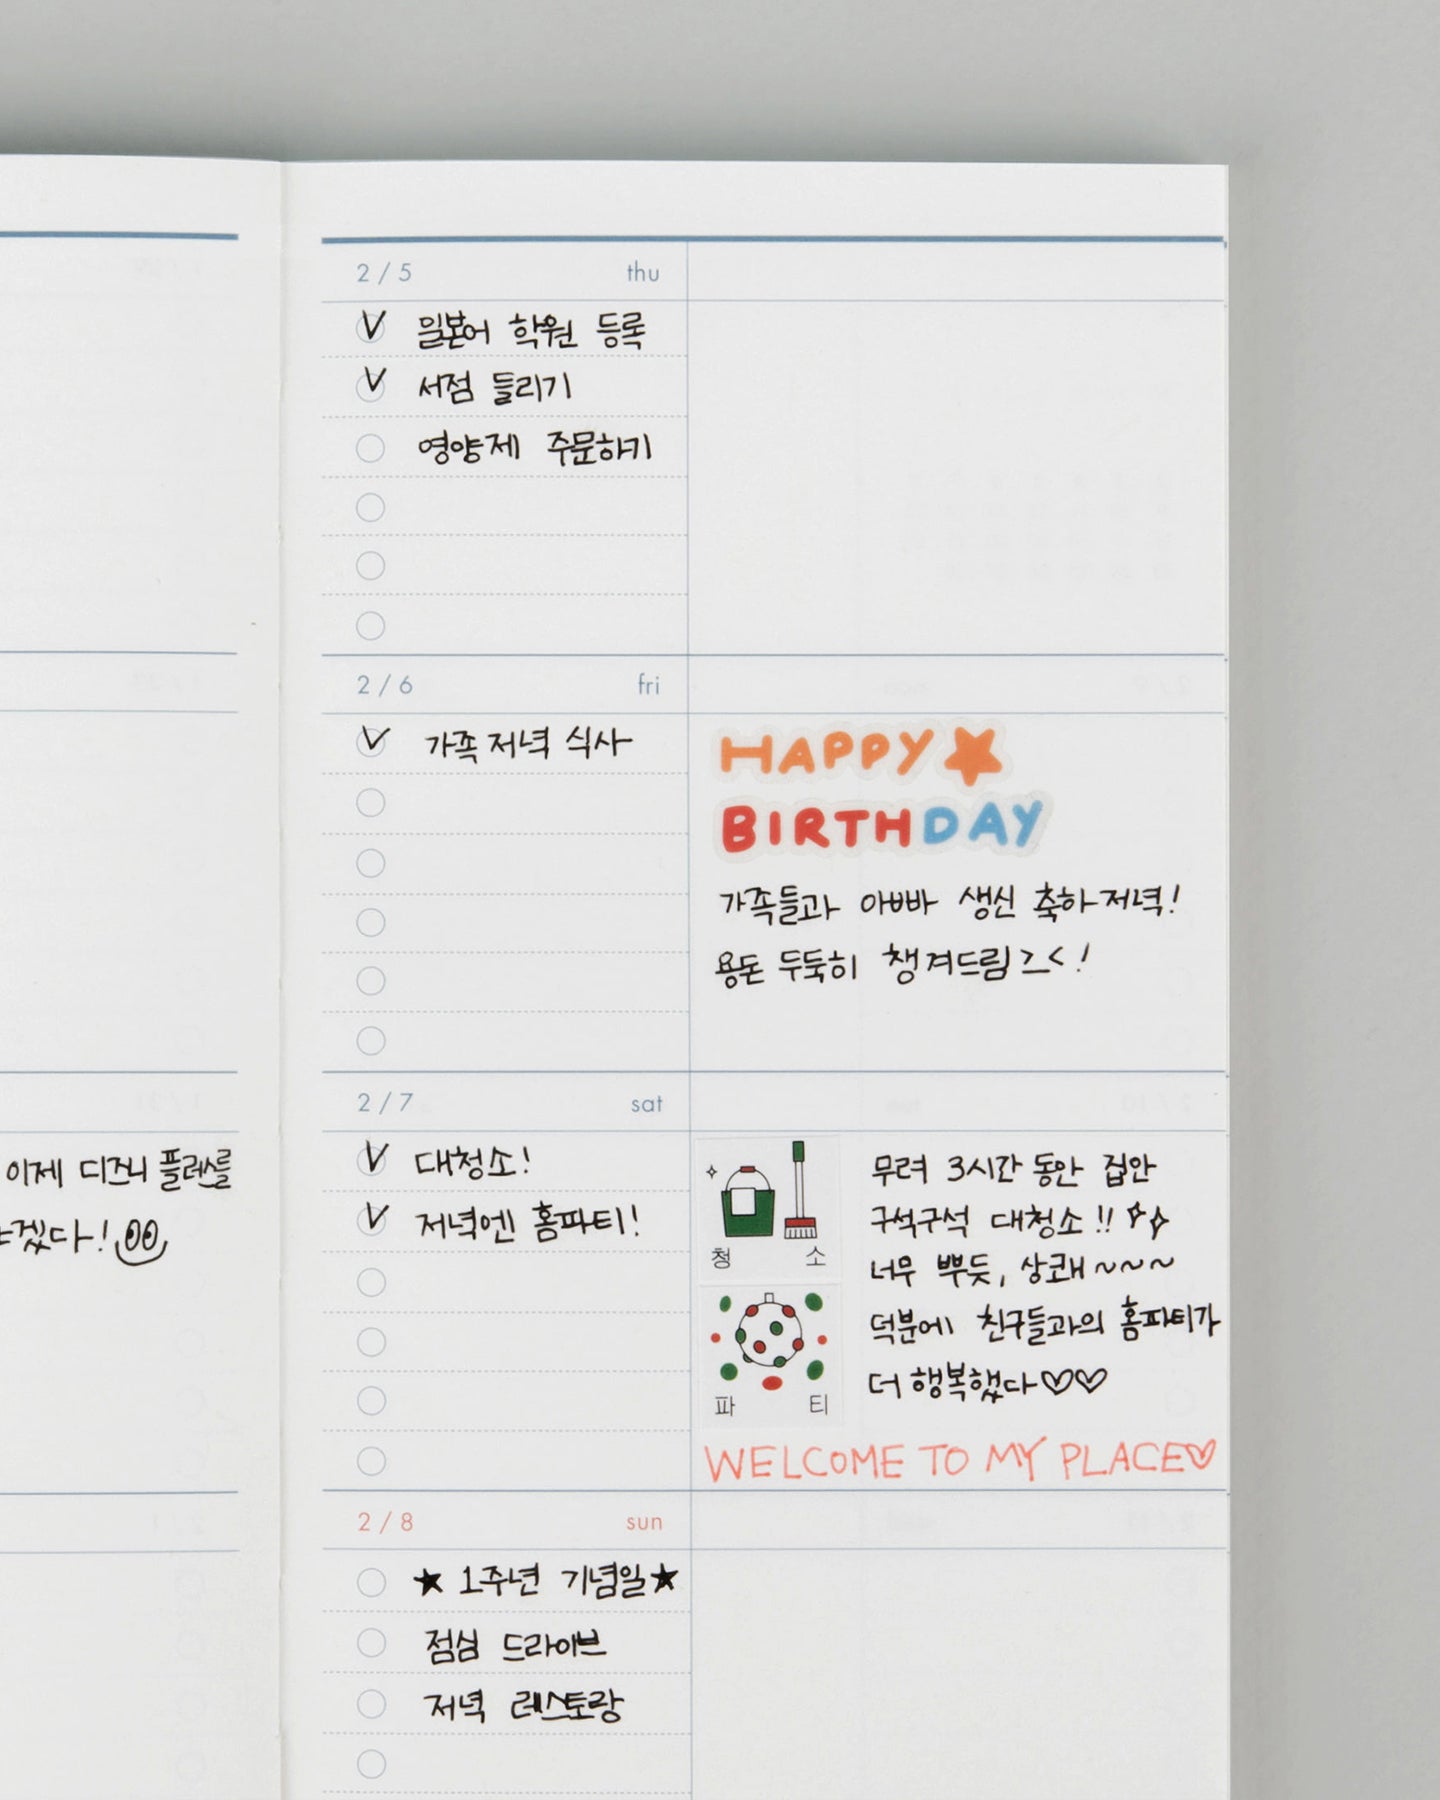 이제 디즈니 플러스를
겠다!
2/5 thu
일본어 학원 등록
서점 들리기
영양제 주문하기
2/6 fri
가족 저녁 식사
HAPPY
BIRTHDAY
가족들과 아빠 생신 축하 저녁!
용돈 두둑히 챙겨드림 >.<!
2/7 sat
대청소!
저녁엔 홈파티!
청 소
파 티
무려 3시간 동안 집안
구석구석 대청소!!
너무 뿌듯, 상쾌~~~
덕분에 친구들과의 홈파티가
더 행복했다♡♡
WELCOME TO MY PLACE♡
2/8 sun
★ 1주년 기념일★
점심 드라이브
저녁 레스토랑